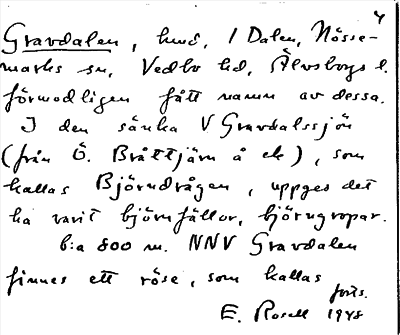 4
Gravdalen, hmd, 1 Dalen, Nösse-
marks sn, Vedbo hd, Älvsborgs l.
förmodligen fått namn av dessa.
I den sänka V Gravdalssjön
(från Ö. Bråttjärn å ek), som
kallas Björndrågen, uppges det
ha varit björnfällor, björngropar.
b:a 800 m. NNV Gravdalen
finnes ett röse, som kallas
forts.
E. Rosell 1948